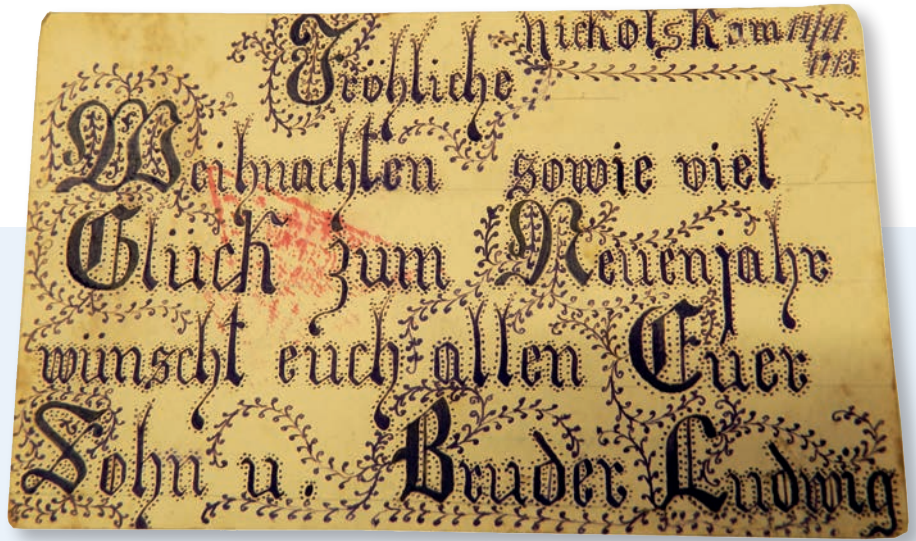 Nickolsk am
1915
Fröhliche
Weihnachten sowie viel
Glück zum Neuenjahr
wünscht euch allen Euer
Sohn u. Bruder Ludwig